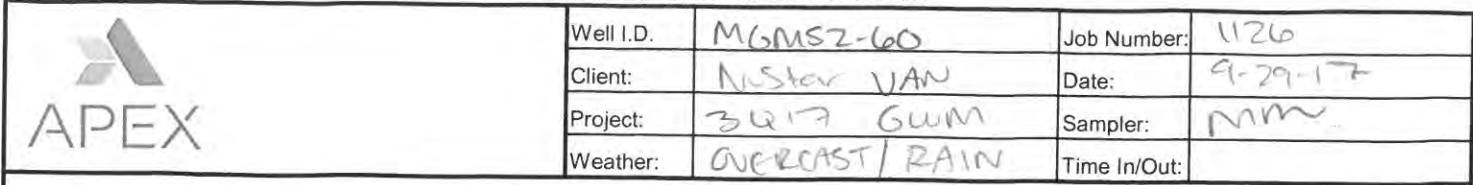 APEX
Well I.D. MGMS2-60 Job Number: 1126
Client: NuStar VAN Date: 9-29-17
Project: 3Q17 GWM Sampler: MM
Weather: OVERCAST/RAIN Time In/Out: